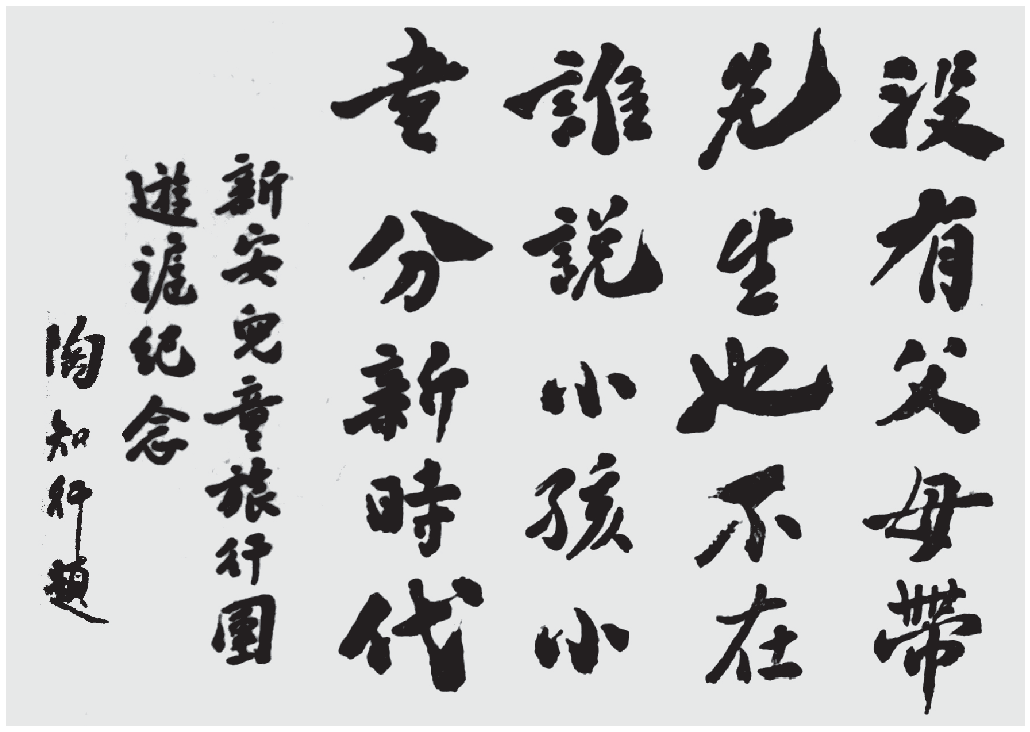 没有父母帶
先生也不在
誰說小孩小
畫分新時代
新安兒童旅行團
遊滬紀念
陶知行題